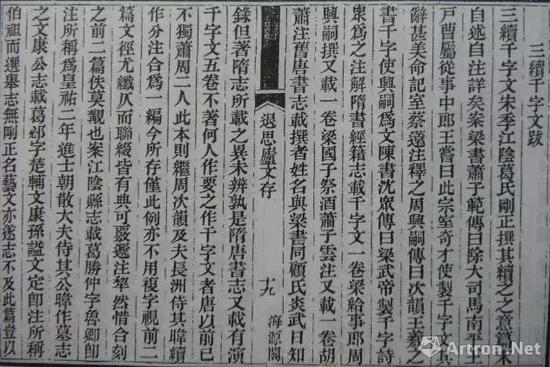 三續千字文跋
三續千字文宋季江陰葛氏剛正撰其續之之意篇末
自述自注詳矣案梁書蕭子範傳曰除大司馬南平王
戶曹屬從事中郎王嘗曰此宗室奇才使製千字文其
辭甚美命記室蔡薳注釋之周興嗣傳曰次韻王羲之
書千字使興嗣爲文陳書沈眾傳曰梁武帝製千字詩
眾爲之注解隋書經籍志載千字文一卷梁給事郎周
興嗣撰又載一卷梁國子祭酒蕭子雲注又載一卷胡
蕭注舊唐書志載撰者姓名與梁書同顧氏炎武日知
退思廬文存
十九
海源閣
錄但著隋志所載之異未辨孰是隋唐書志又載有演
千字文五卷不著何人作要之作千字文者唐以前已
不獨蕭周二人此本則繼周次韻及夫長洲侍其暐續
作分注合爲一編今所存僅此例亦不用複字視前二
篇文徑尤纖仄而聯綴皆有典可覈遞注犂然惜合刻
之前二篇佚莫觀也案江陰縣志載葛勝仲字魯卿卽
注所稱爲皇祐二年進士朝散大夫侍其公暐作墓志
之文康公志載葛郯字楚輔文康孫謚文定卽注所稱
伯祖而選舉志無剛正名藝文亦遂志不及此篇豈以
Artron.Net